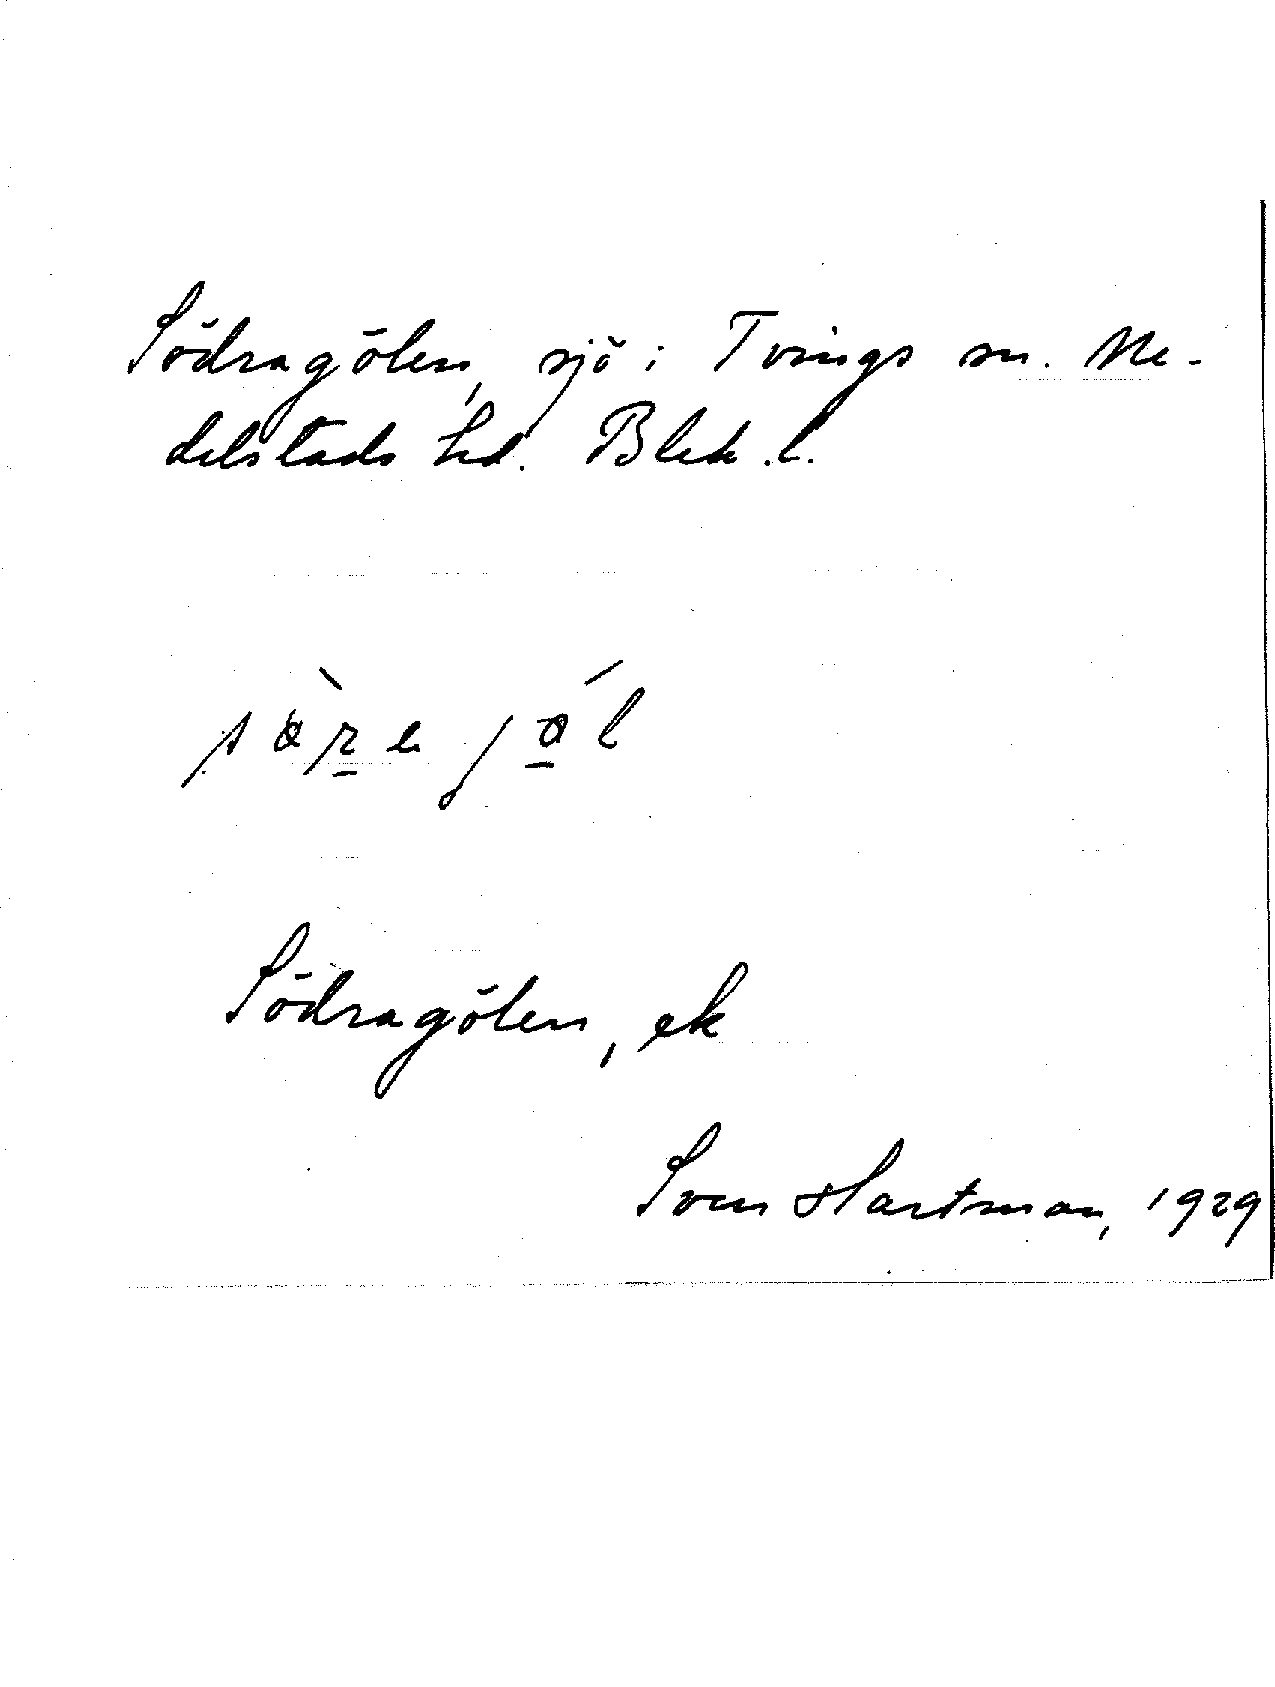 Södragölen, sjö i Tvings sn. Me-
delstads hd. Blek. l.
Södragölen, ek
Sven Hartman, 1929